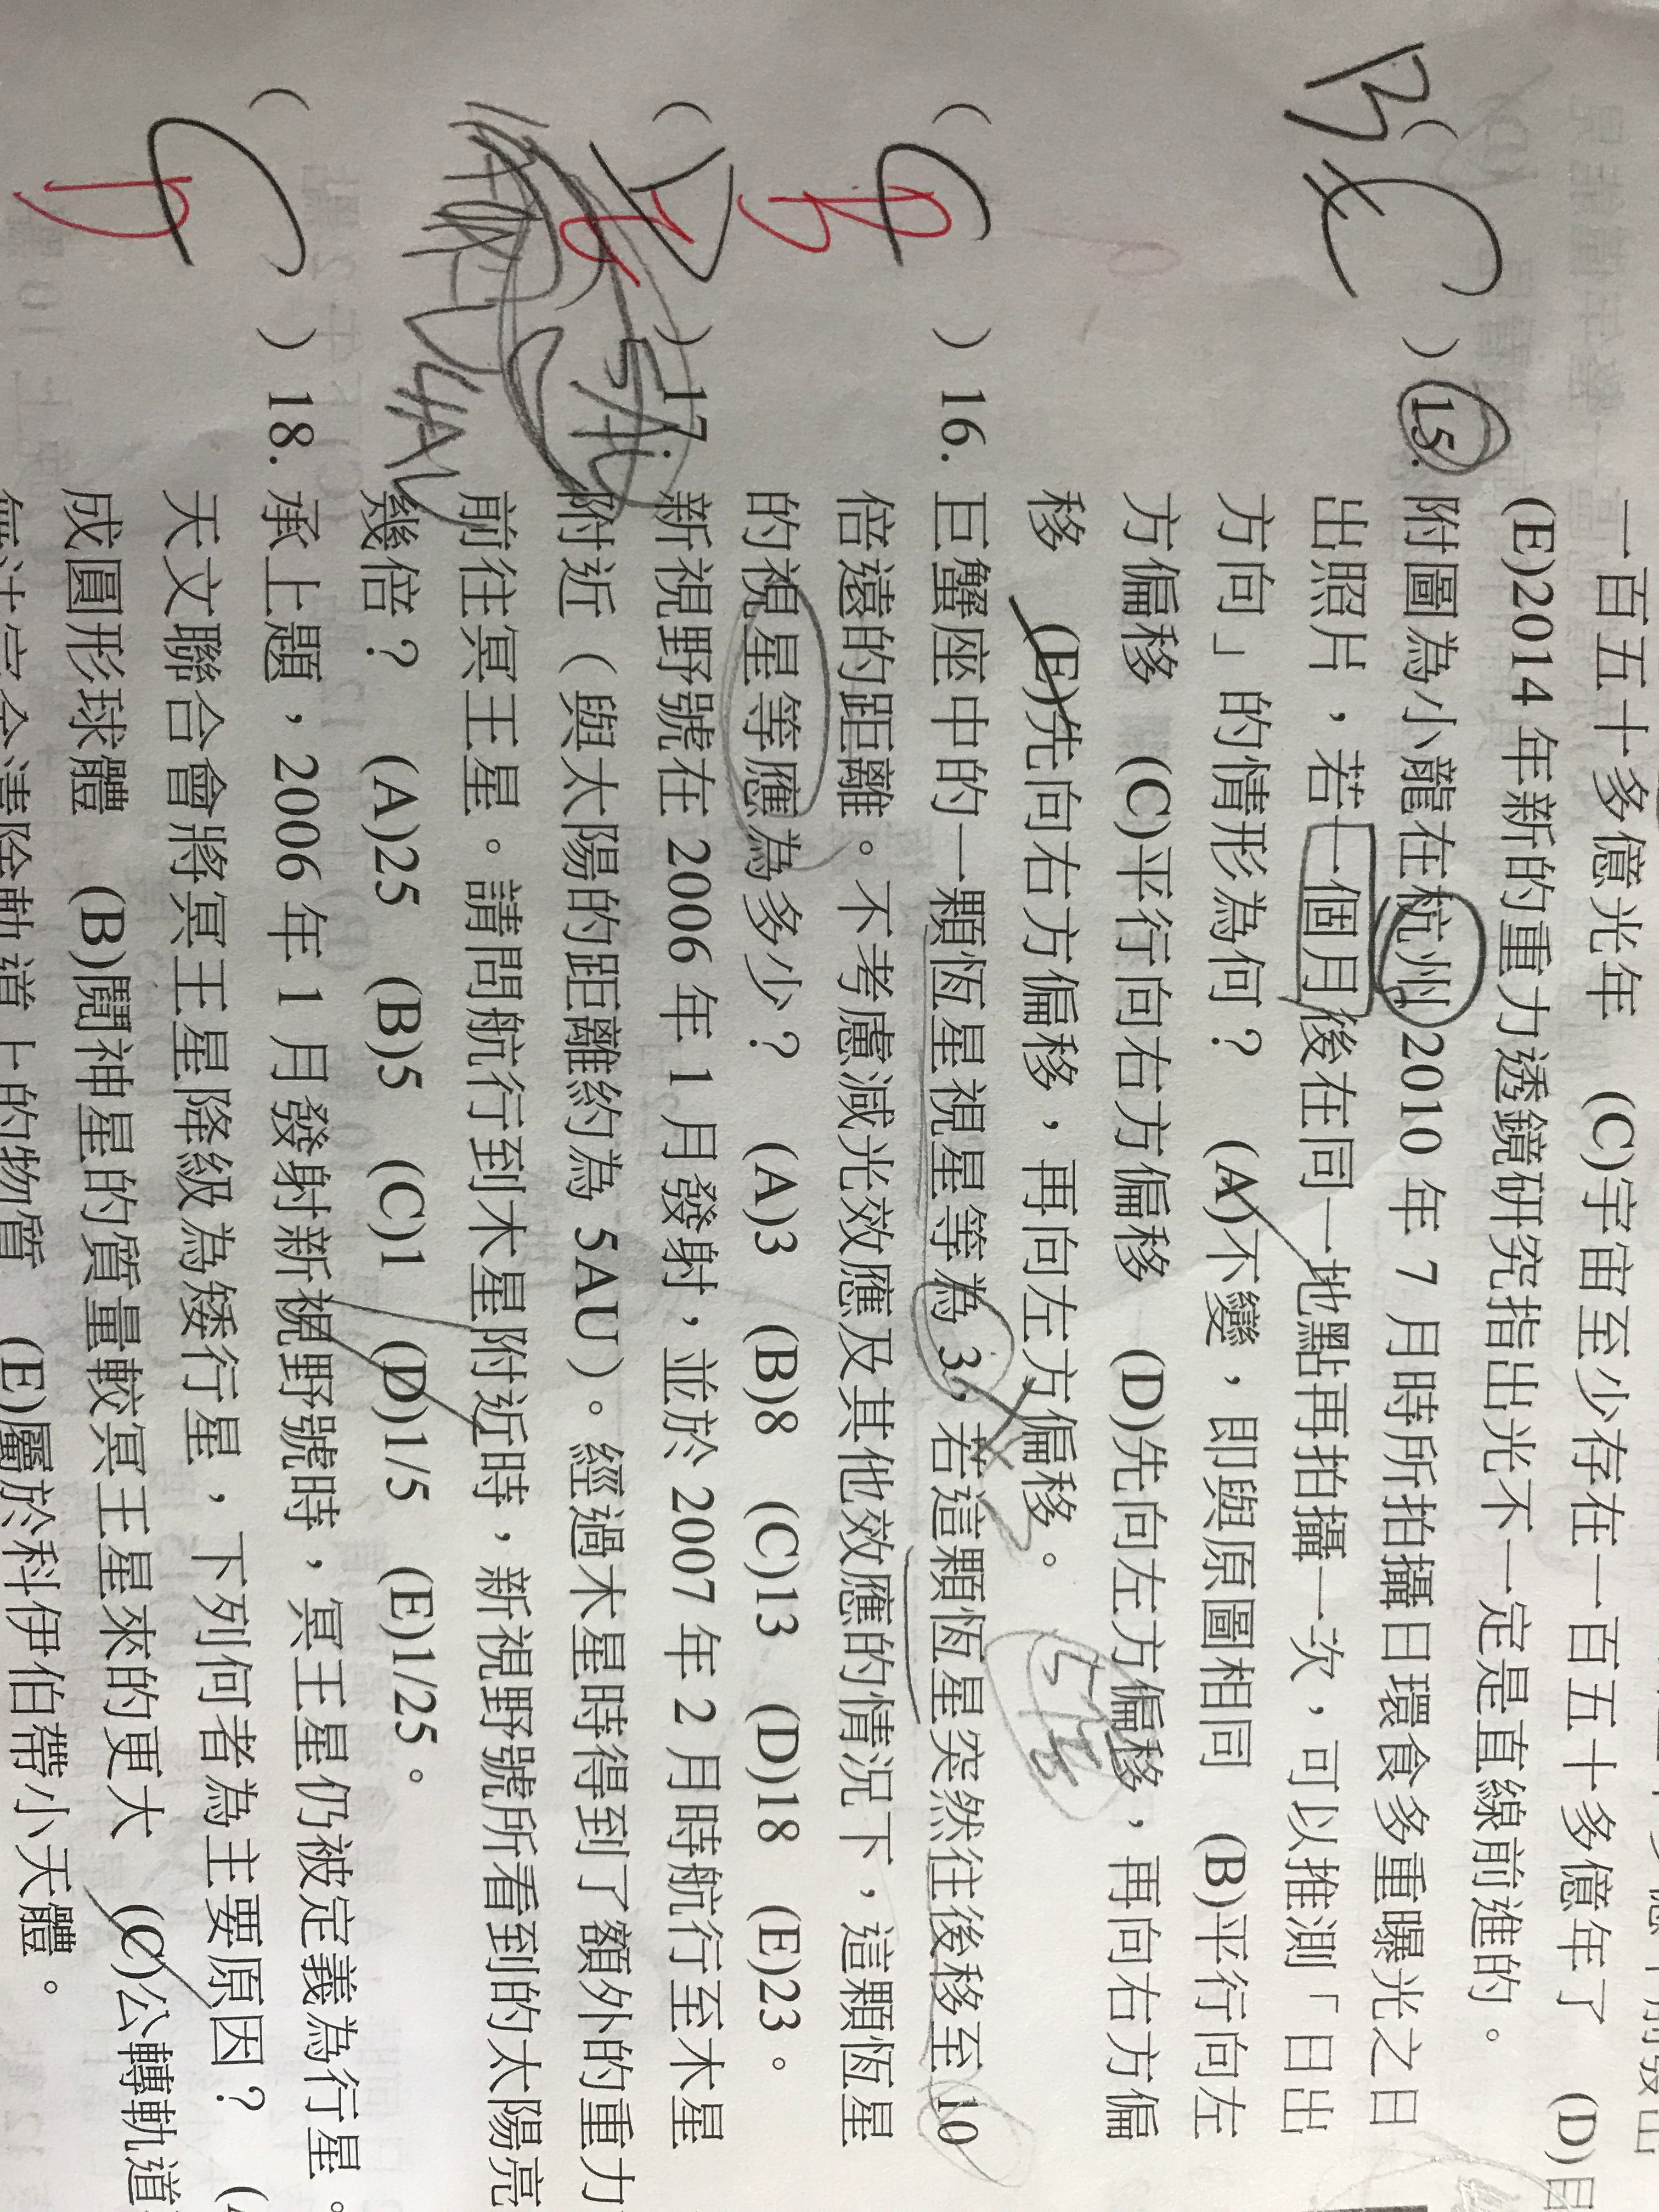 一百五十多億光年　(C)宇宙至少存在一百五十多億年了　(D)目
(E)2014年新的重力透鏡研究指出光不一定是直線前進的。
BC
(　)15. 附圖為小龍在杭州2010年7月時所拍攝日環食多重曝光之日
出照片，若一個月後在同一地點再拍攝一次，可以推測「日出
方向」的情形為何？　(A)不變，即與原圖相同　(B)平行向左
方偏移　(C)平行向右方偏移　(D)先向左方偏移，再向右方偏
移　(E)先向右方偏移，再向左方偏移。
C B
(　)16. 巨蟹座中的一顆恆星視星等為3，若這顆恆星突然往後移至10
倍遠的距離。不考慮減光效應及其他效應的情況下，這顆恆星
的視星等應為多少？　(A)3　(B)8　(C)13　(D)18　(E)23。
D
(　)17. 新視野號在2006年1月發射，並於2007年2月時航行至木星
附近（與太陽的距離約為5AU）。經過木星時得到了額外的重力
前往冥王星。請問航行到木星附近時，新視野號所看到的太陽亮
幾倍？　(A)25　(B)5　(C)1　(D)1/5　(E)1/25。
C
(　)18. 承上題，2006年1月發射新視野號時，冥王星仍被定義為行星。
天文聯合會將冥王星降級為矮行星，下列何者為主要原因？　(A
成圓形球體　(B)鬩神星的質量較冥王星來的更大　(C)公轉軌道
無法完全清除軌道上的物質　(E)屬於科伊伯帶小天體。